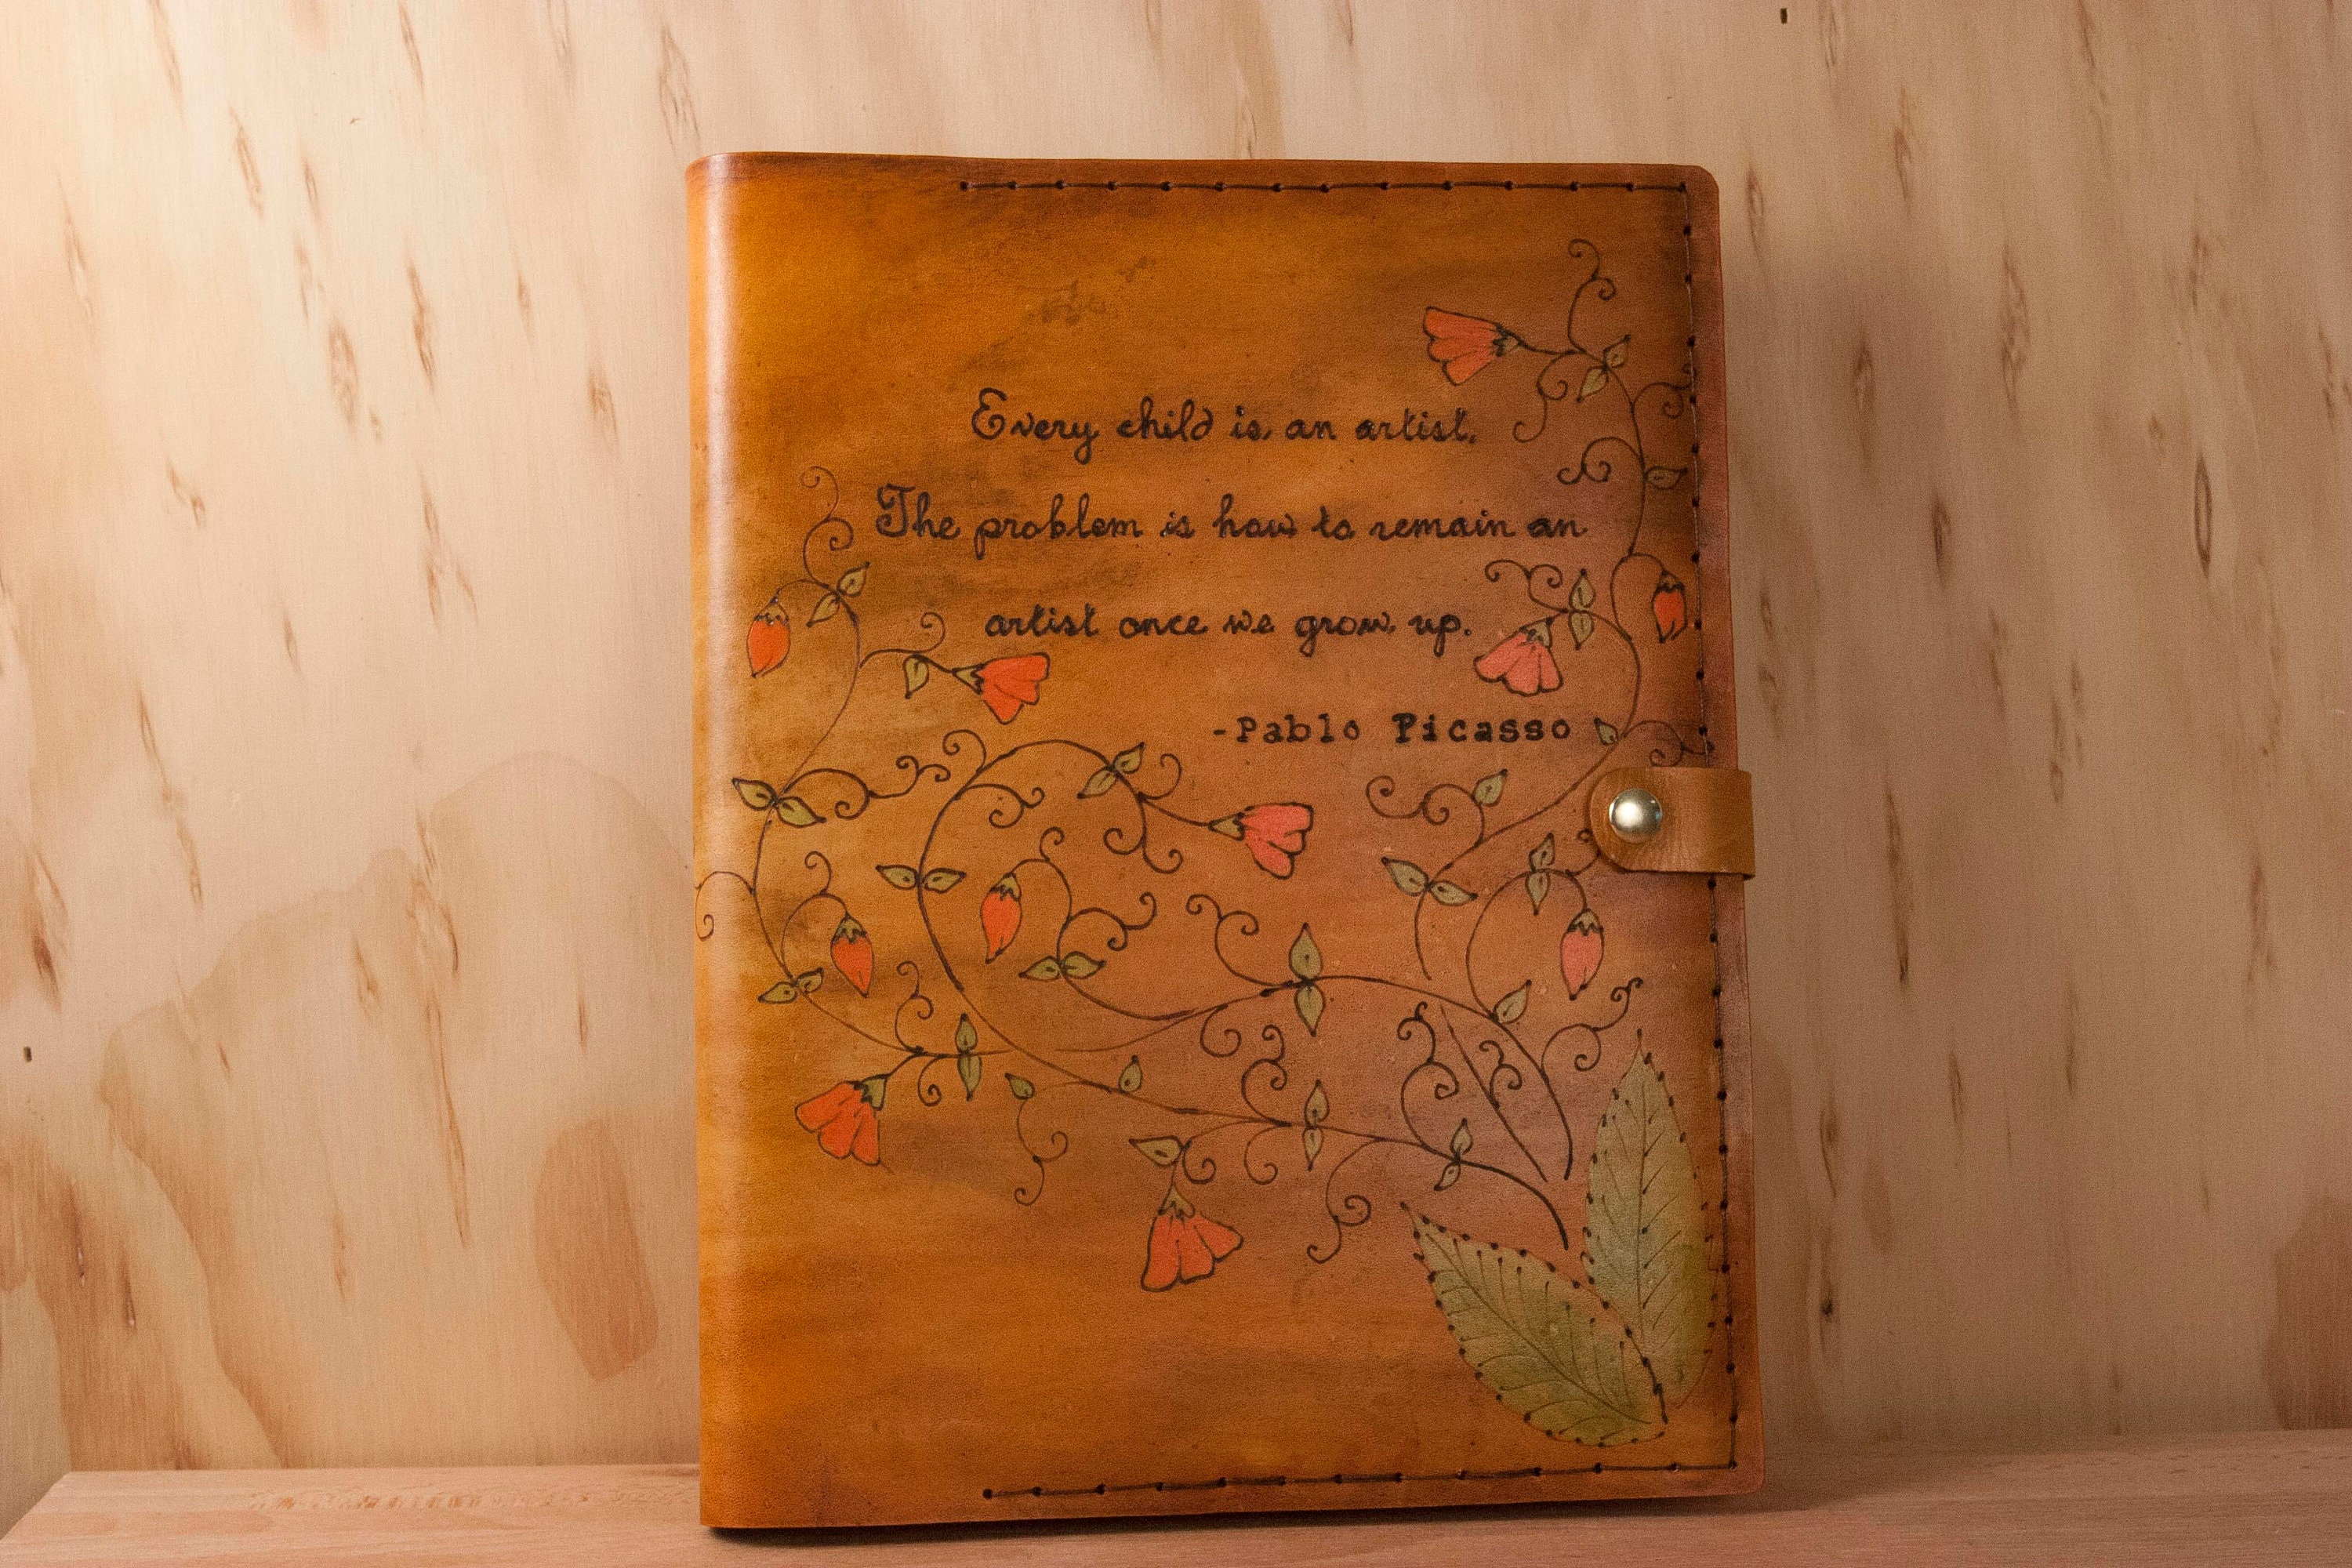 Every child is an artist.
The problem is how to remain an
artist once we grow up.
-Pablo Picasso